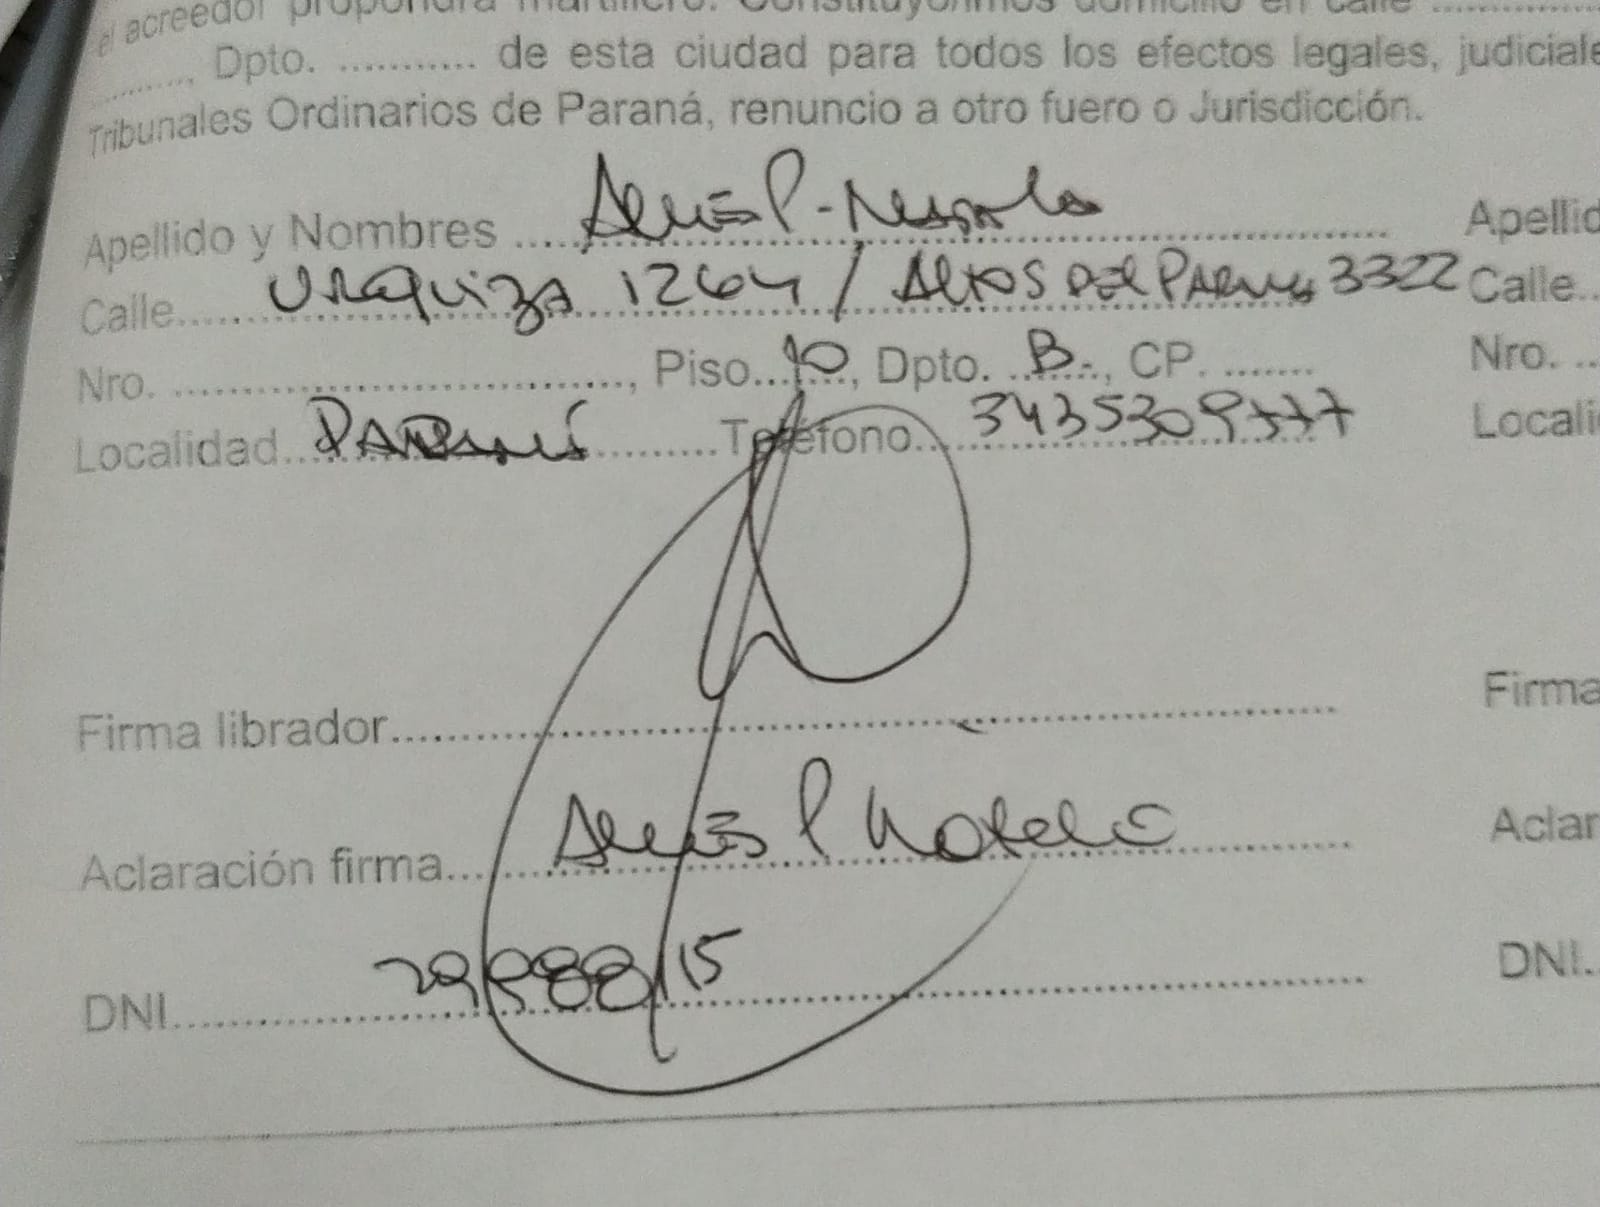 el acreedor propondrá martillero. Constituyo/imos domicilio en calle ..............
........., Dpto. ........... de esta ciudad para todos los efectos legales, judiciale
Tribunales Ordinarios de Paraná, renuncio a otro fuero o Jurisdicción.
Apellido y Nombres .... P. Apellid
Calle.... URQUIZA 1264 / ALTOS DEL 3322 Calle..
Nro. ............................., Piso... 10, Dpto. B, CP. ....... Nro. ..
Localidad... PARANÁ ........Teléfono... Locali
Firma librador............................................................. Firma
Aclaración firma... P Aclar
DNI.................................................... DNI.